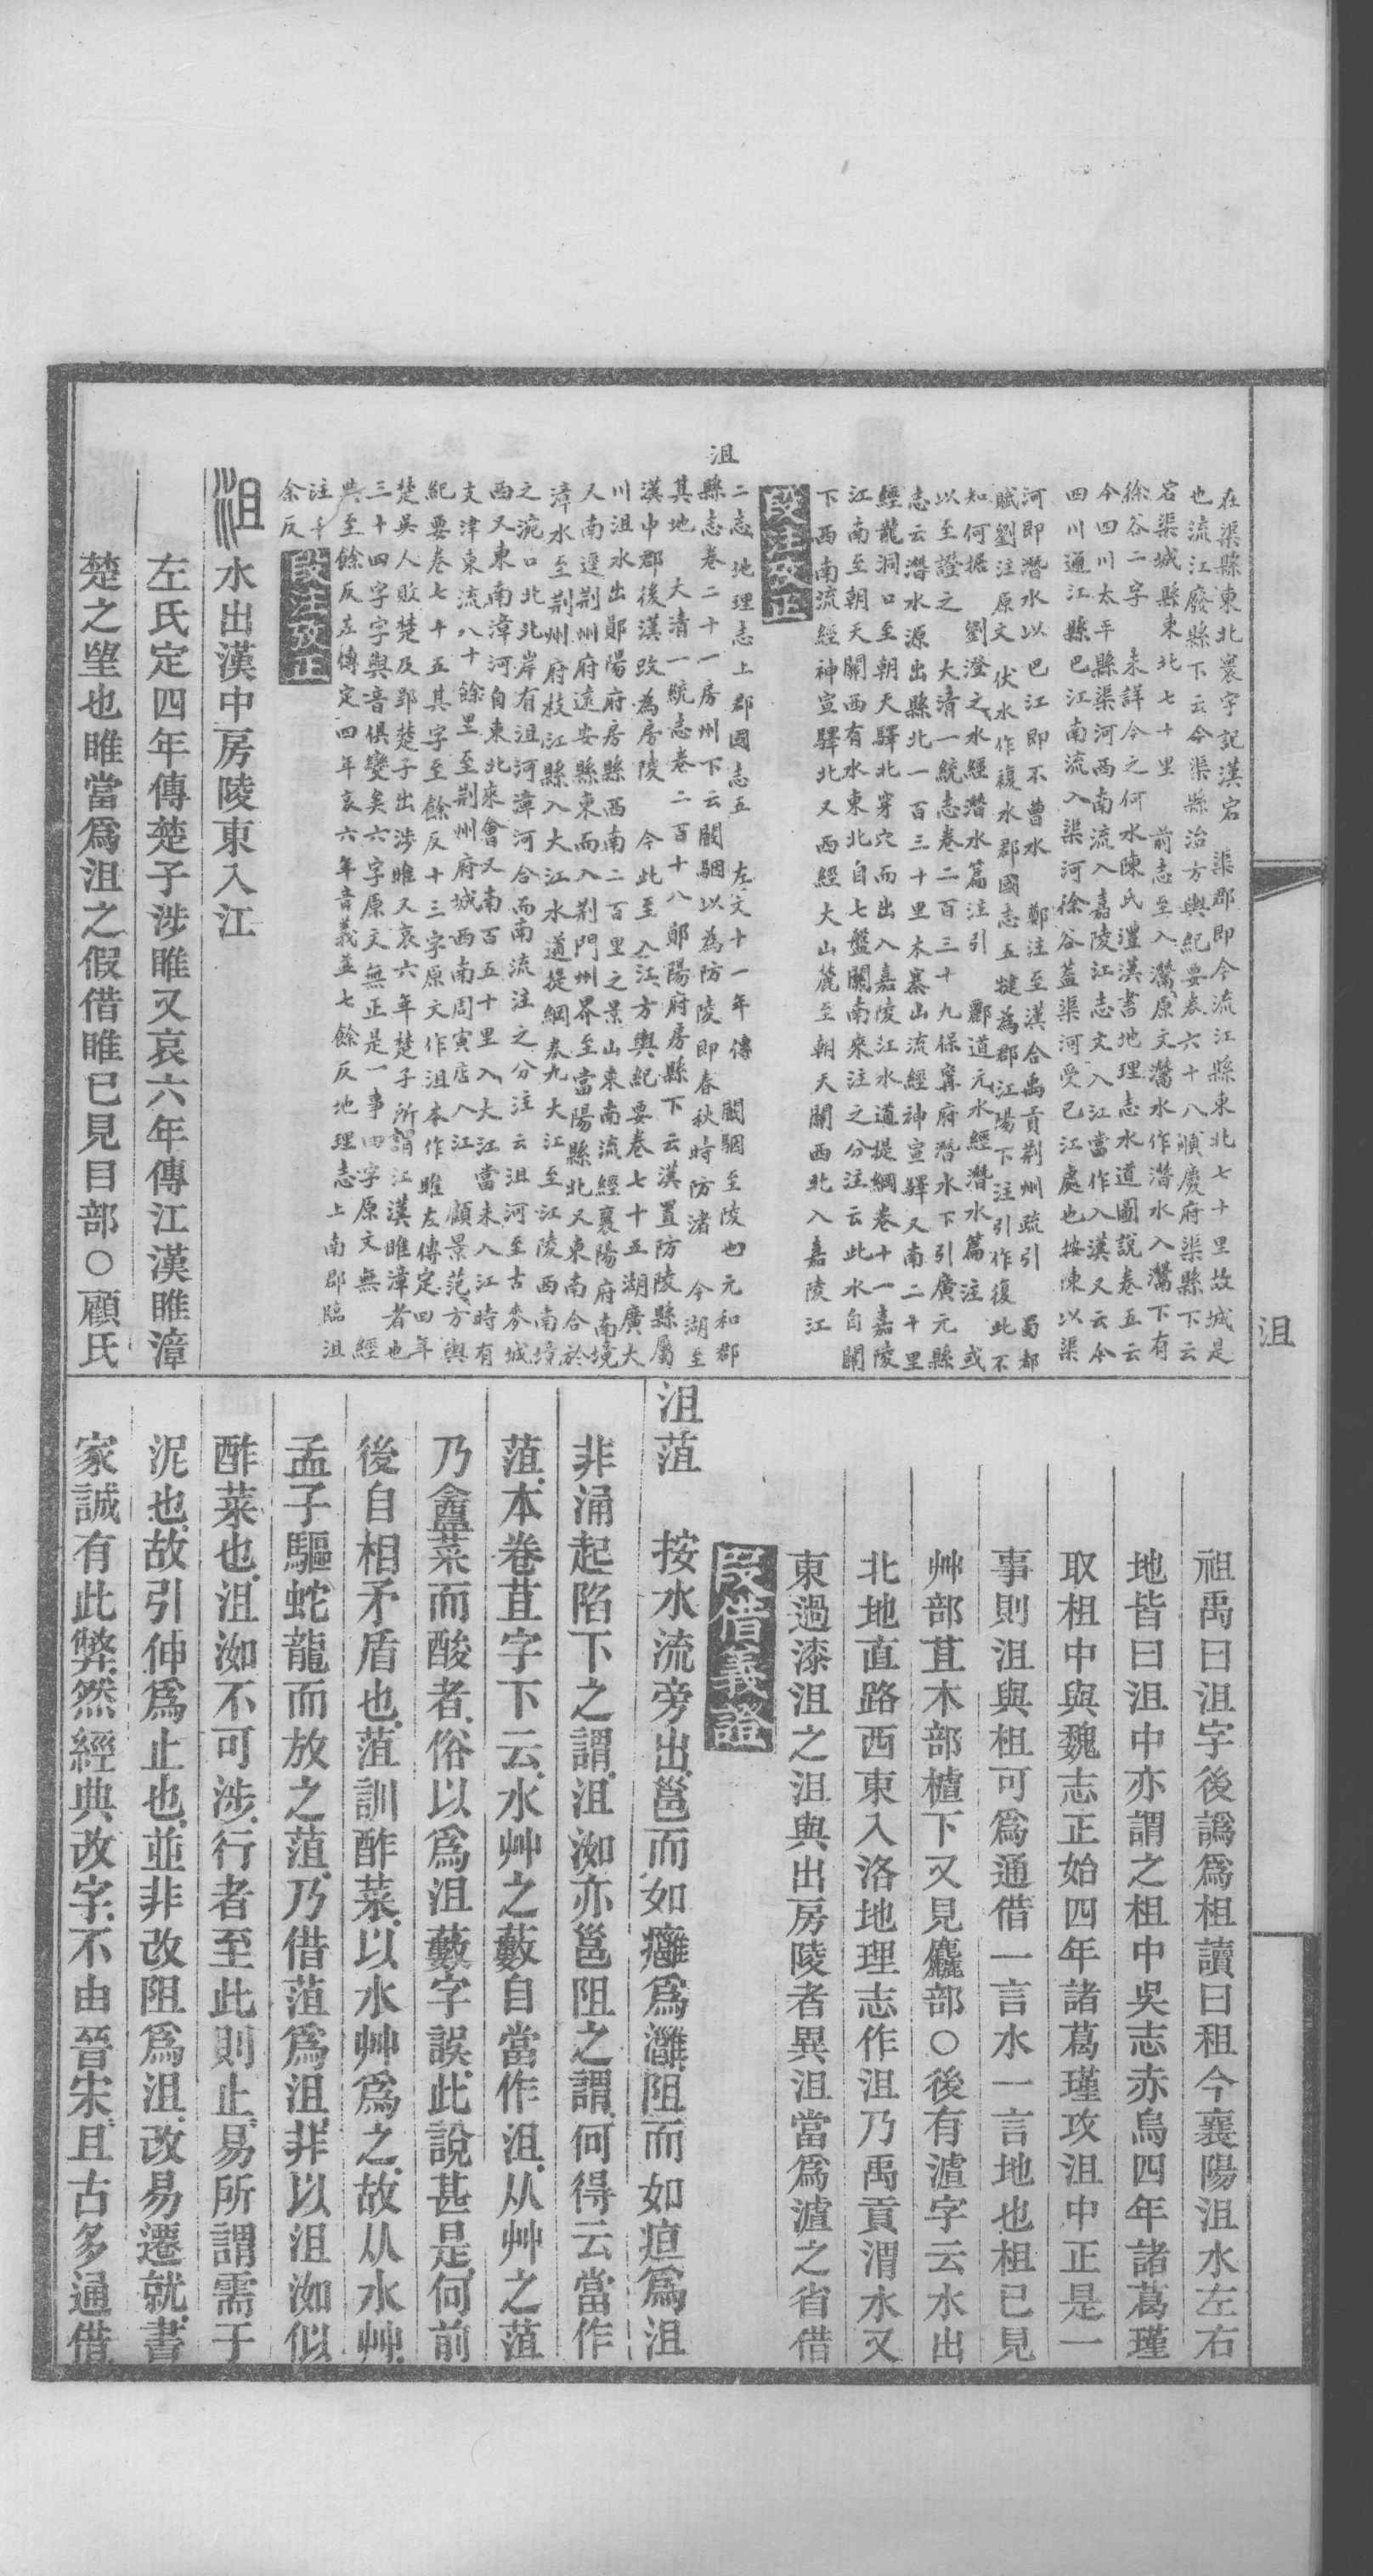 沮
在渠縣東北寰宇記漢宕渠郡即今流江縣東北七十里故城是
也流江廢縣下云今渠縣治方輿紀要卷六十八順慶府渠縣下云
宕渠城縣東北七十里前志至入灊原文灊水作潛水入灊下有
徐谷二字未詳今之何水陳氏澧漢書地理志水道圖說卷五云
今四川太平縣渠河西南流入嘉陵江志文入江當作入漢又云今
四川通江縣巴江南流入渠河徐谷蓋渠河受巴江處也按陳以渠
河即潛水以巴江即不曹水鄭注至漢合禹貢荆州疏引蜀都
賦劉注原文伏水作複水郡國志五犍為郡江陽下注引作復此不
知何據劉澄之水經潛水篇注引酈道元水經潛水篇注或
以至證之大清一統志卷二百三十九保甯府潛水下引廣元縣
志云潛水源出縣北一百三十里木寨山流經神宣驛又南二十里
經龍洞口至朝天驛北穿穴而出入嘉陵江水道提綱卷十一嘉陵
江南至朝天關西有水東北自七盤關南來注之分注云此水自關
下西南流經神宣驛北又西經大山麓至朝天關西北入嘉陵江
段注攷正
沮
二志地理志上郡國志五左文十一年傳闞駰至陵也元和郡
縣志卷二十一房州下云闞駰以為防陵即春秋時防渚今湖至
其地大清一統志卷二百十八鄖陽府房縣下云漢置防陵縣屬
漢中郡後漢改為房陵今此至入江方輿紀要卷七十五湖廣大
川沮水出鄖陽府房縣西南二百里之景山東南流經襄陽府南境
又南逕荆州府遠安縣東而入荆門州界至當陽縣北又東南合於
漳水至荆州府枝江縣入大江水道提綱卷九大江至江陵西南境
之涴口北北岸有沮河漳河合而南流注之分注云沮河至古麥城
西又東南漳河自東北來會又南百五十里入大江當未入江時有
支津東流八十餘里至荆州府城西南周寅店入江顧景范方輿
紀要卷七十五其字至餘反十三字原文作沮本作睢左傳定四年
楚吳人敗楚及郢楚子出涉睢又哀六年楚子所謂江漢睢漳者也
三十四字字與音俱變矣六字原文無正是一事四字原文無經
典至餘反左傳定四年哀六年音義並七餘反地理志上南郡臨沮
注千
余反
段注攷正
沮水出漢中房陵東入江
左氏定四年傳楚子涉睢又哀六年傳江漢睢漳
楚之望也睢當爲沮之假借睢已見目部○顧氏
祖禹曰沮字後譌爲柤讀曰租今襄陽沮水左右
地皆曰沮中亦謂之柤中吳志赤烏四年諸葛瑾
取柤中與魏志正始四年諸葛瑾攻沮中正是一
事則沮與柤可爲通借一言水一言地也柤已見
艸部苴木部樝下又見麤部○後有瀘字云水出
北地直路西東入洛地理志作沮乃禹貢渭水又
東過漆沮之沮與出房陵者異沮當爲瀘之省借
段借義證
沮菹
按水流旁出邕而如癰爲灉阻而如疽爲沮
非涌起陷下之謂沮洳亦邕阻之謂何得云當作
菹本卷苴字下云水艸之藪自當作沮从艸之菹
乃韲菜而酸者俗以爲沮藪字誤此說甚是何前
後自相矛盾也菹訓酢菜以水艸爲之故从水艸
孟子驅蛇龍而放之菹乃借菹爲沮非以沮洳似
酢菜也沮洳不可涉行者至此則止易所謂需于
泥也故引伸爲止也並非改阻爲沮改易遷就書
家誠有此弊然經典改字不由晉宋且古多通借